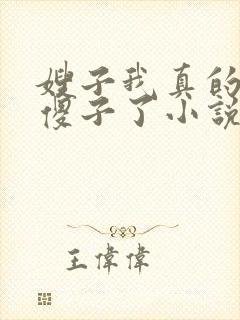 嫂子我真的
傻子了小説
王偉偉